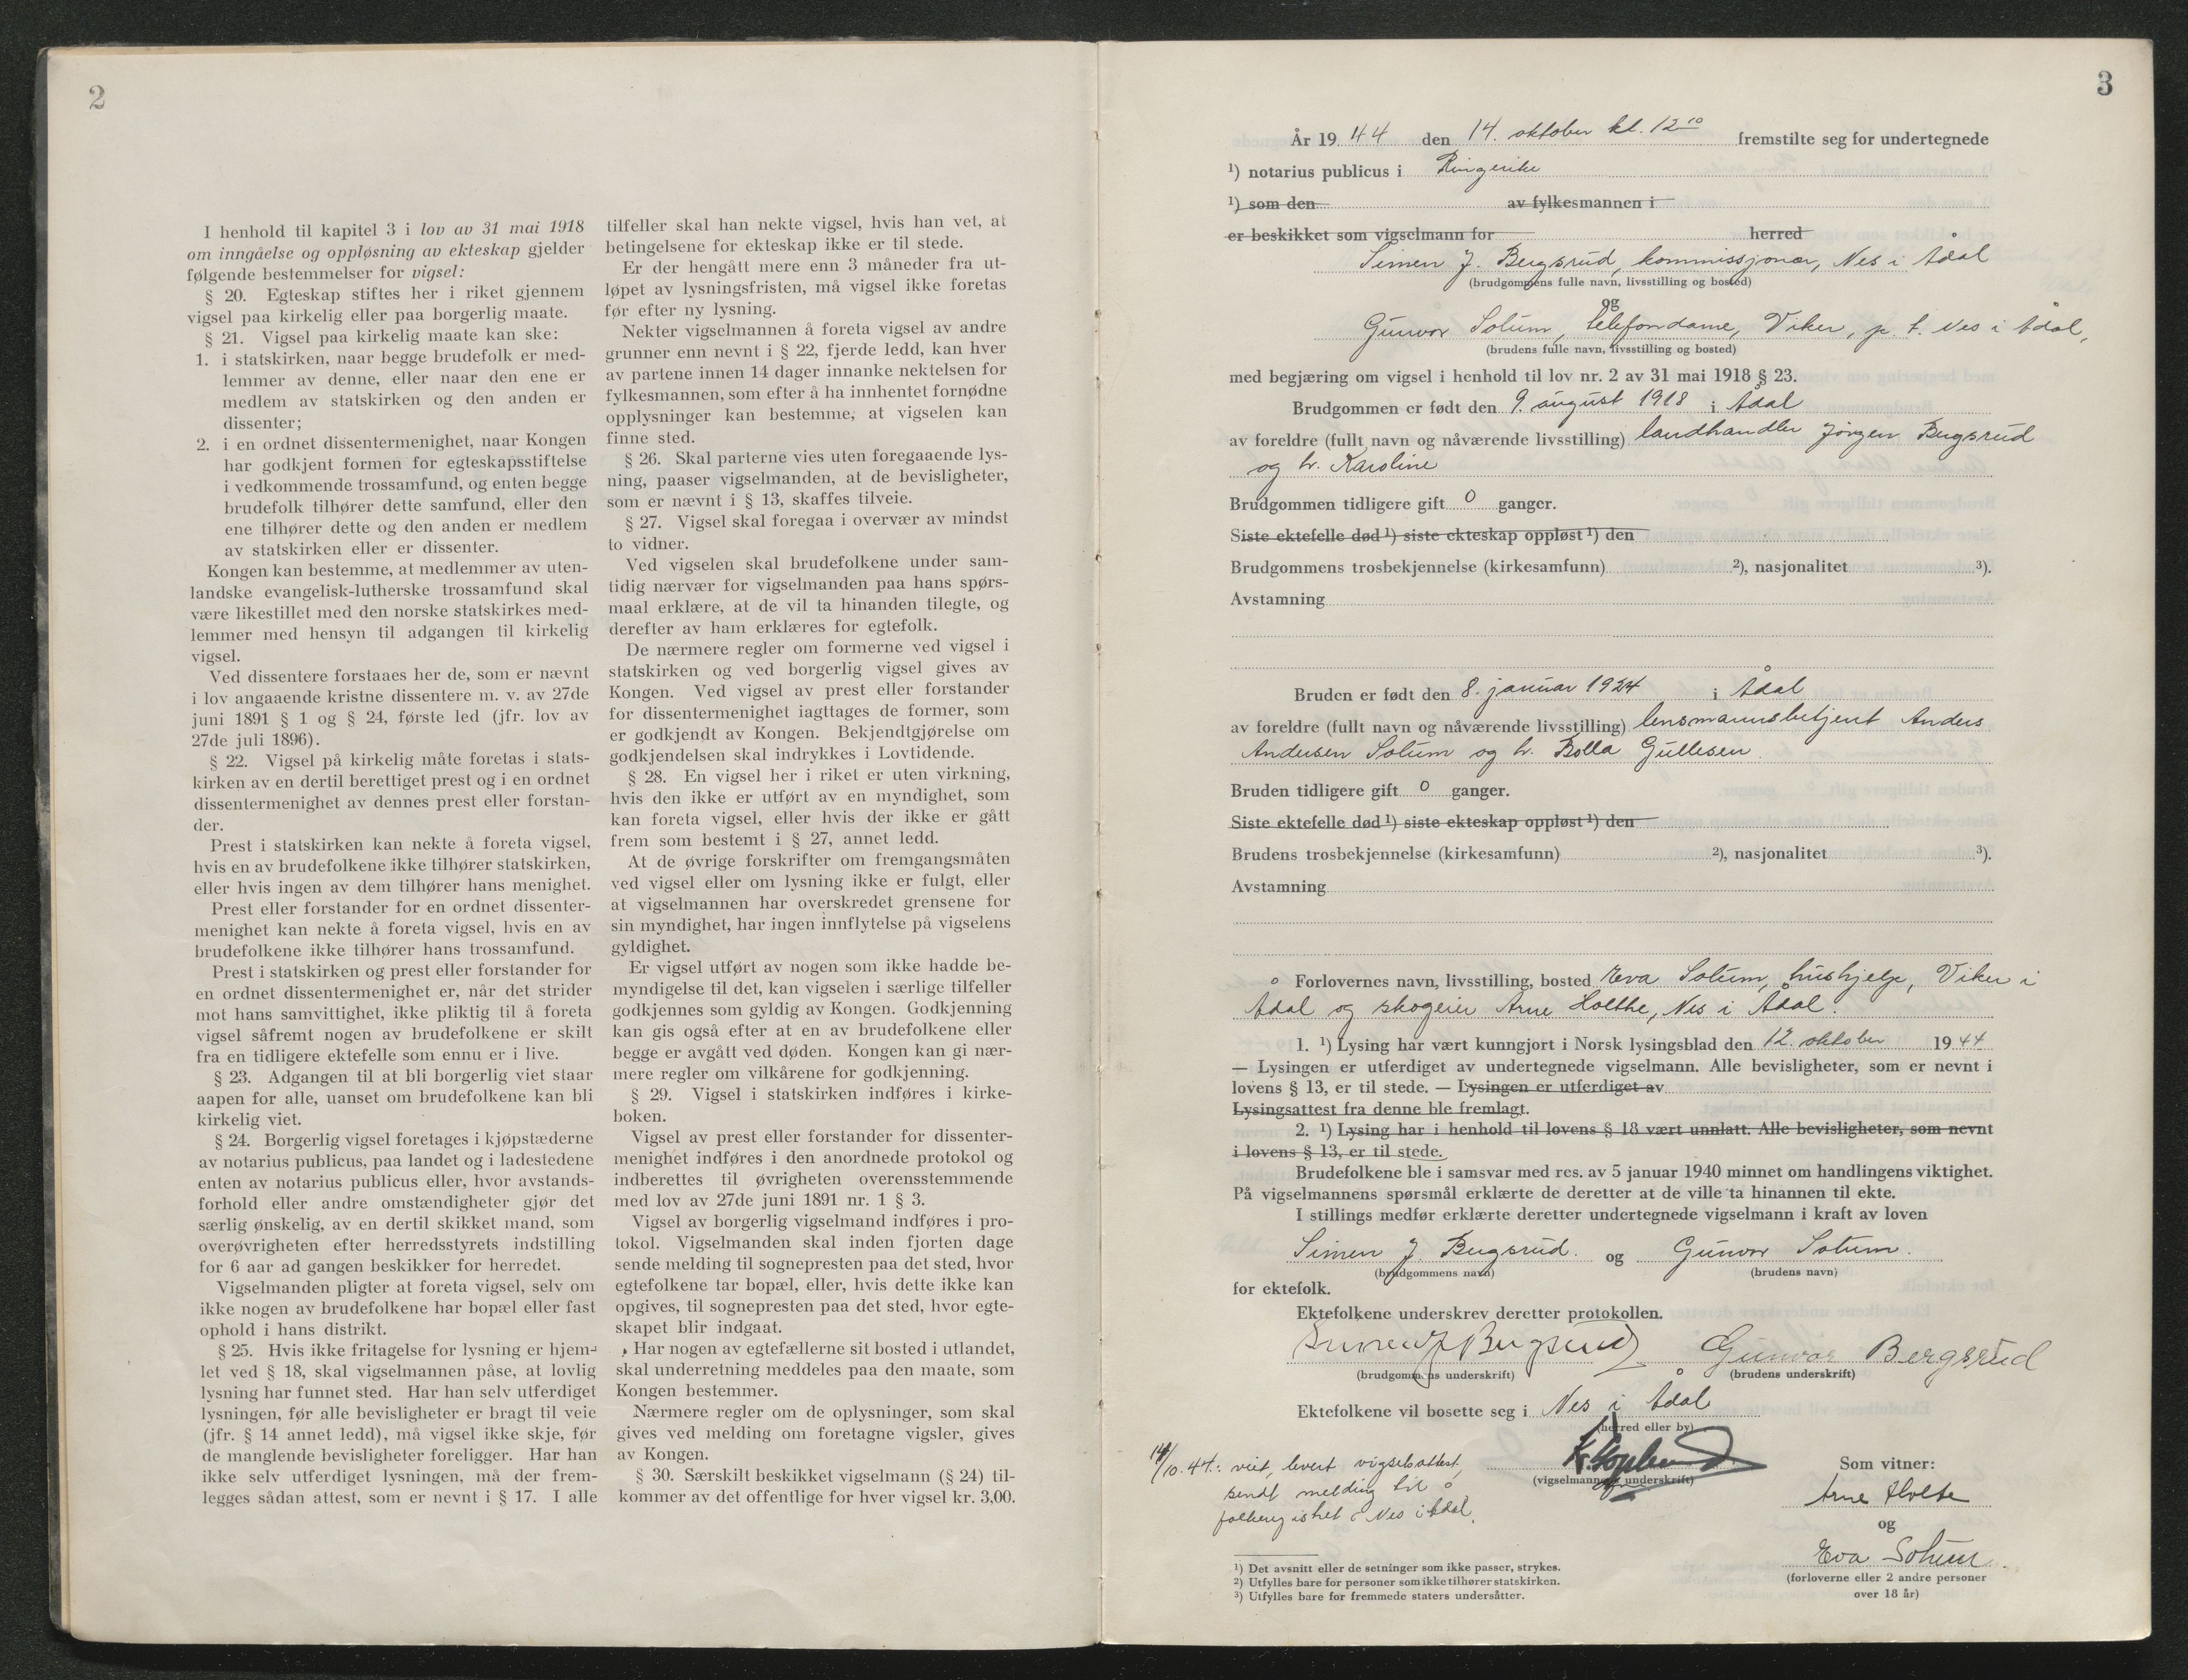 2
I henhold til kapitel 3 i lov av 31 mai 1918
om inngåelse og oppløsning av ekteskap gjelder
følgende bestemmelser for vigsel:
§ 20. Egteskap stiftes her i riket gjennem
vigsel paa kirkelig eller paa borgerlig maate.
§ 21. Vigsel paa kirkelig maate kan ske:
1. i statskirken, naar begge brudefolk er med-
lemmer av denne, eller naar den ene er
medlem av statskirken og den anden er
dissenter;
2. i en ordnet dissentermenighet, naar Kongen
har godkjent formen for egteskapsstiftelse
i vedkommende trossamfund, og enten begge
brudefolk tilhører dette samfund, eller den
ene tilhører dette og den anden er medlem
av statskirken eller er dissenter.
Kongen kan bestemme, at medlemmer av uten-
landske evangelisk-lutherske trossamfund skal
være likestillet med den norske statskirkes med-
lemmer med hensyn til adgangen til kirkelig
vigsel.
Ved dissentere forstaaes her de, som er nævnt
i lov angaaende kristne dissentere m. v. av 27de
juni 1891 § 1 og § 24, første led (jfr. lov av
27de juli 1896).
§ 22. Vigsel på kirkelig måte foretas i stats-
kirken av en dertil berettiget prest og i en ordnet
dissentermenighet av dennes prest eller forstan-
der.
Prest i statskirken kan nekte å foreta vigsel,
hvis en av brudefolkene ikke tilhører statskirken,
eller hvis ingen av dem tilhører hans menighet.
Prest eller forstander for en ordnet dissenter-
menighet kan nekte å foreta vigsel, hvis en av
brudefolkene ikke tilhører hans trossamfund.
Prest i statskirken og prest eller forstander for
en ordnet dissentermenighet er, når det strider
mot hans samvittighet, ikke pliktig til å foreta
vigsel såfremt nogen av brudefolkene er skilt
fra en tidligere ektefelle som ennu er i live.
§ 23. Adgangen til at bli borgerlig viet staar
aapen for alle, uanset om brudefolkene kan bli
kirkelig viet.
§ 24. Borgerlig vigsel foretages i kjøpstæderne
av notarius publicus, paa landet og i ladestedene
enten av notarius publicus eller, hvor avstands-
forhold eller andre omstændigheter gjør det
særlig ønskelig, av en dertil skikket mand, som
overøvrigheten efter herredsstyrets indstilling
for 6 aar ad gangen beskikker for herredet.
Vigselmanden pligter at foreta vigsel, selv om
ikke nogen av brudefolkene har bopæl eller fast
ophold i hans distrikt.
§ 25. Hvis ikke fritagelse for lysning er hjem-
let ved § 18, skal vigselmannen påse, at lovlig
lysning har funnet sted. Har han selv utferdiget
lysningen, før alle bevisligheter er bragt til veie
(jfr. § 14 annet ledd), må vigsel ikke skje, før
de manglende bevisligheter foreligger. Har han
ikke selv utferdiget lysningen, må der frem-
legges sådan attest, som er nevnt i § 17. I alle
tilfeller skal han nekte vigsel, hvis han vet, at
betingelsene for ekteskap ikke er til stede.
Er der hengått mere enn 3 måneder fra ut-
løpet av lysningsfristen, må vigsel ikke foretas
før efter ny lysning.
Nekter vigselmannen å foreta vigsel av andre
grunner enn nevnt i § 22, fjerde ledd, kan hver
av partene innen 14 dager innanke nektelsen for
fylkesmannen, som efter å ha innhentet fornødne
opplysninger kan bestemme, at vigselen kan
finne sted.
§ 26. Skal parterne vies uten foregaaende lys-
ning, paaser vigselmanden, at de bevisligheter,
som er nævnt i § 13, skaffes tilveie.
§ 27. Vigsel skal foregaa i overvær av mindst
to vidner.
Ved vigselen skal brudefolkene under sam-
tidig nærvær for vigselmanden paa hans spørs-
maal erklære, at de vil ta hinanden tilegte, og
derefter av ham erklæres for egtefolk.
De nærmere regler om formerne ved vigsel i
statskirken og ved borgerlig vigsel gives av
Kongen. Ved vigsel av prest eller forstander
for dissentermenighet iagttages de former, som
er godkjendt av Kongen. Bekjendtgjørelse om
godkjendelsen skal indrykkes i Lovtidende.
§ 28. En vigsel her i riket er uten virkning,
hvis den ikke er utført av en myndighet, som
kan foreta vigsel, eller hvis der ikke er gått
frem som bestemt i § 27, annet ledd.
At de øvrige forskrifter om fremgangsmåten
ved vigsel eller om lysning ikke er fulgt, eller
at vigselmannen har overskredet grensene for
sin myndighet, har ingen innflytelse på vigselens
gyldighet.
Er vigsel utført av nogen som ikke hadde be-
myndigelse til det, kan vigselen i særlige tilfeller
godkjennes som gyldig av Kongen. Godkjenning
kan gis også efter at en av brudefolkene eller
begge er avgått ved døden. Kongen kan gi nær-
mere regler om vilkårene for godkjenning.
§ 29. Vigsel i statskirken indføres i kirke-
boken.
Vigsel av prest eller forstander for dissenter-
menighet indføres i den anordnede protokol og
indberettes til øvrigheten overensstemmende
med lov av 27de juni 1891 nr. 1 § 3.
Vigsel av borgerlig vigselmand indføres i pro-
tokol. Vigselmanden skal inden fjorten dage
sende melding til sognepresten paa det sted, hvor
egtefolkene tar bopæl, eller, hvis dette ikke kan
opgives, til sognepresten paa det sted, hvor egte-
skapet blir indgaat.
Har nogen av egtefællerne sit bosted i utlandet,
skal underretning meddeles paa den maate, som
Kongen bestemmer.
Nærmere regler om de oplysninger, som skal
gives ved melding om foretagne vigsler, gives
av Kongen.
§ 30. Særskilt beskikket vigselmann (§ 24) til-
kommer av det offentlige for hver vigsel kr. 3,00.
3
År 1944 den 14. oktober kl. 12 10 fremstilte seg for undertegnede
1) notarius publicus i Ringerike
1) som den av fylkesmannen i
er beskikket som vigselmann for herred
Simen J. Bergsrud, kommissjonær, Nes i Ådal
(brudgommens fulle navn, livsstilling og bosted)
og
Gunvor Solum, telefondame, Viker, p. t. Nes i Ådal,
(brudens fulle navn, livsstilling og bosted)
med begjæring om vigsel i henhold til lov nr. 2 av 31 mai 1918 § 23.
Brudgommen er født den 9. august 1918 i Ådal
av foreldre (fullt navn og nåværende livsstilling) landhandler Jörgen Bergsrud
og h. Karoline
Brudgommen tidligere gift 0 ganger.
Siste ektefelle død 1) siste ekteskap oppløst 1) den
Brudgommens trosbekjennelse (kirkesamfunn) 2), nasjonalitet 3).
Avstamning
Bruden er født den 8. januar 1924 i Ådal
av foreldre (fullt navn og nåværende livsstilling) lensmannsbetjent Anders
Andersen Solum og h. Bolla Gullesen.
Bruden tidligere gift 0 ganger.
Siste ektefelle død 1) siste ekteskap oppløst 1) den
Brudens trosbekjennelse (kirkesamfunn) 2), nasjonalitet 3).
Avstamning
Forlovernes navn, livsstilling, bosted Eva Solum, hushjelp, Viker i
Ådal og skogeier Arne Holthe, Nes i Ådal.
1. 1) Lysing har vært kunngjort i Norsk lysingsblad den 12. oktober 1944
— Lysingen er utferdiget av undertegnede vigselmann. Alle bevisligheter, som er nevnt i
lovens § 13, er til stede. — Lysingen er utferdiget av
Lysingsattest fra denne ble fremlagt.
2. 1) Lysing har i henhold til lovens § 18 vært unnlatt. Alle bevisligheter, som nevnt
i lovens § 13, er til stede.
Brudefolkene ble i samsvar med res. av 5 januar 1940 minnet om handlingens viktighet.
På vigselmannens spørsmål erklærte de deretter at de ville ta hinannen til ekte.
I stillings medfør erklærte deretter undertegnede vigselmann i kraft av loven
Simen J. Bergsrud. og Gunvor Solum.
(brudgommens navn) (brudens navn)
for ektefolk.
Ektefolkene underskrev deretter protokollen.
Simen J Bergsrud Gunvor Bergsrud
(brudgommens underskrift) (brudens underskrift)
Ektefolkene vil bosette seg i Nes i Ådal
(herred eller by)
14/10.44.: viet, levert vigselsattest,
sendt melding til
folkeregistret i Nes i Ådal.
(vigselmannens underskrift)
Som vitner:
Arne Holte
og
Eva Solum
(forloverne eller 2 andre personer
over 18 år)
1) Det avsnitt eller de setninger som ikke passer, strykes.
2) Utfylles bare for personer som ikke tilhører statskirken.
3) Utfylles bare for fremmede staters undersåtter.